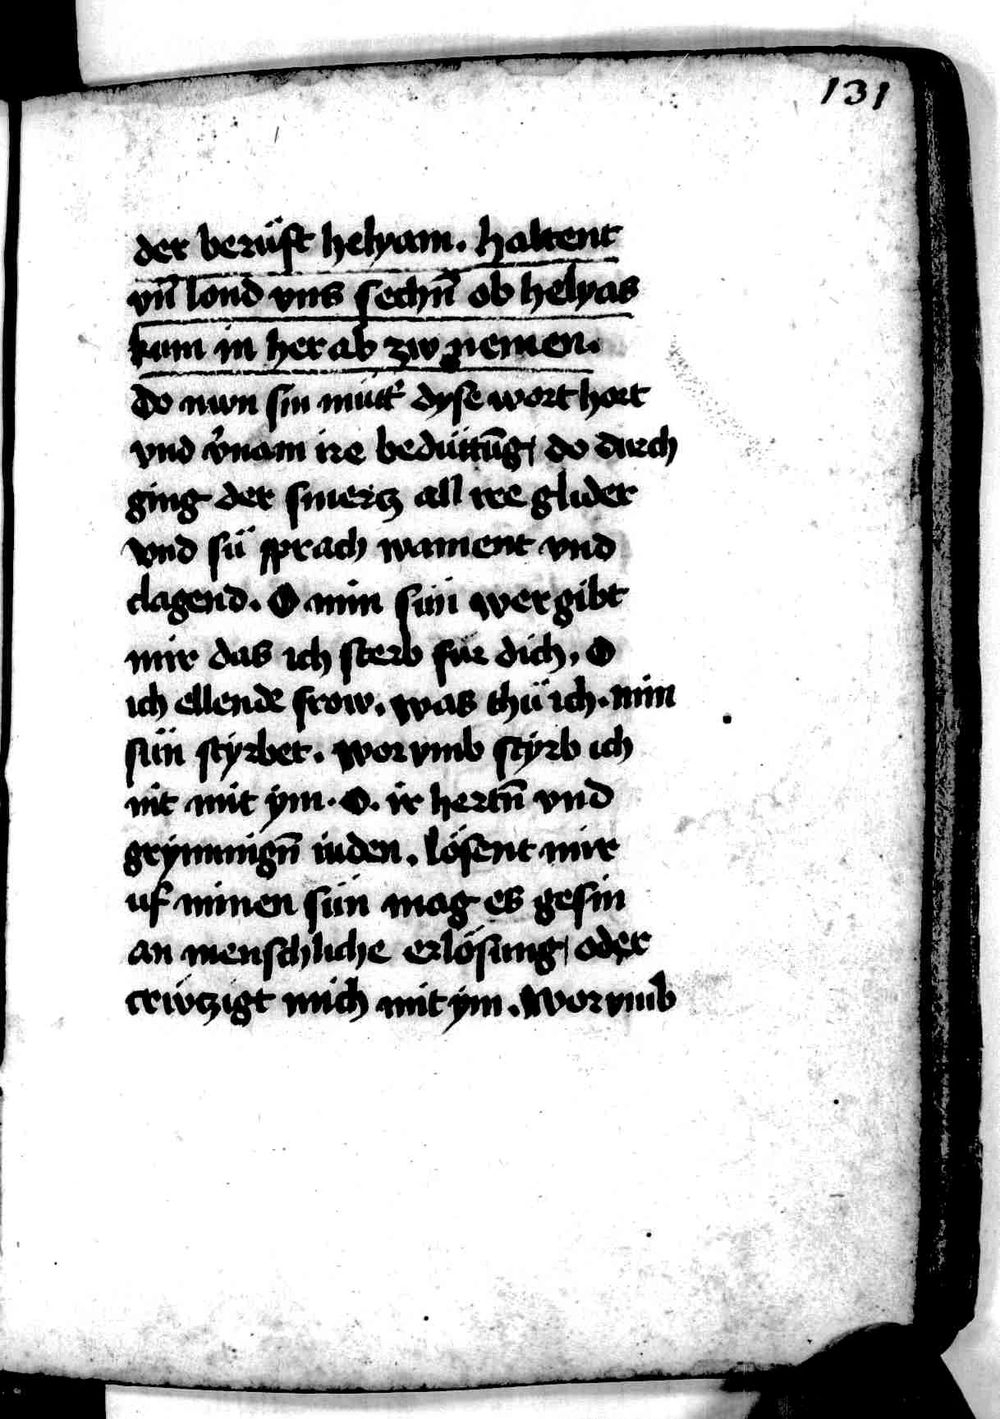 131
der berüft helyam. haltent
vn̄ lond vns sechn̄ ob helyas
kum in her ab zw nemen.
Do nwn sin müt͛ dyse wort hort
vnd v͛nam ire bedüttūg| do durch
ging der smertz all ire glider
vnd sü sprach wament vnd
clagend. O min sün wer gibt
mir das ich sterb für dich. O
ich ellende frow. was thü ich. min
sün styrbet. wor vmb styrb ich
nit mit ym. O. ir hertn̄ vnd
grymmign̄ iuden. lösent mir
uf minen sün mag es gesin
an menschliche erlösung| oder
criwtzigt mich mit ym. wor vmb